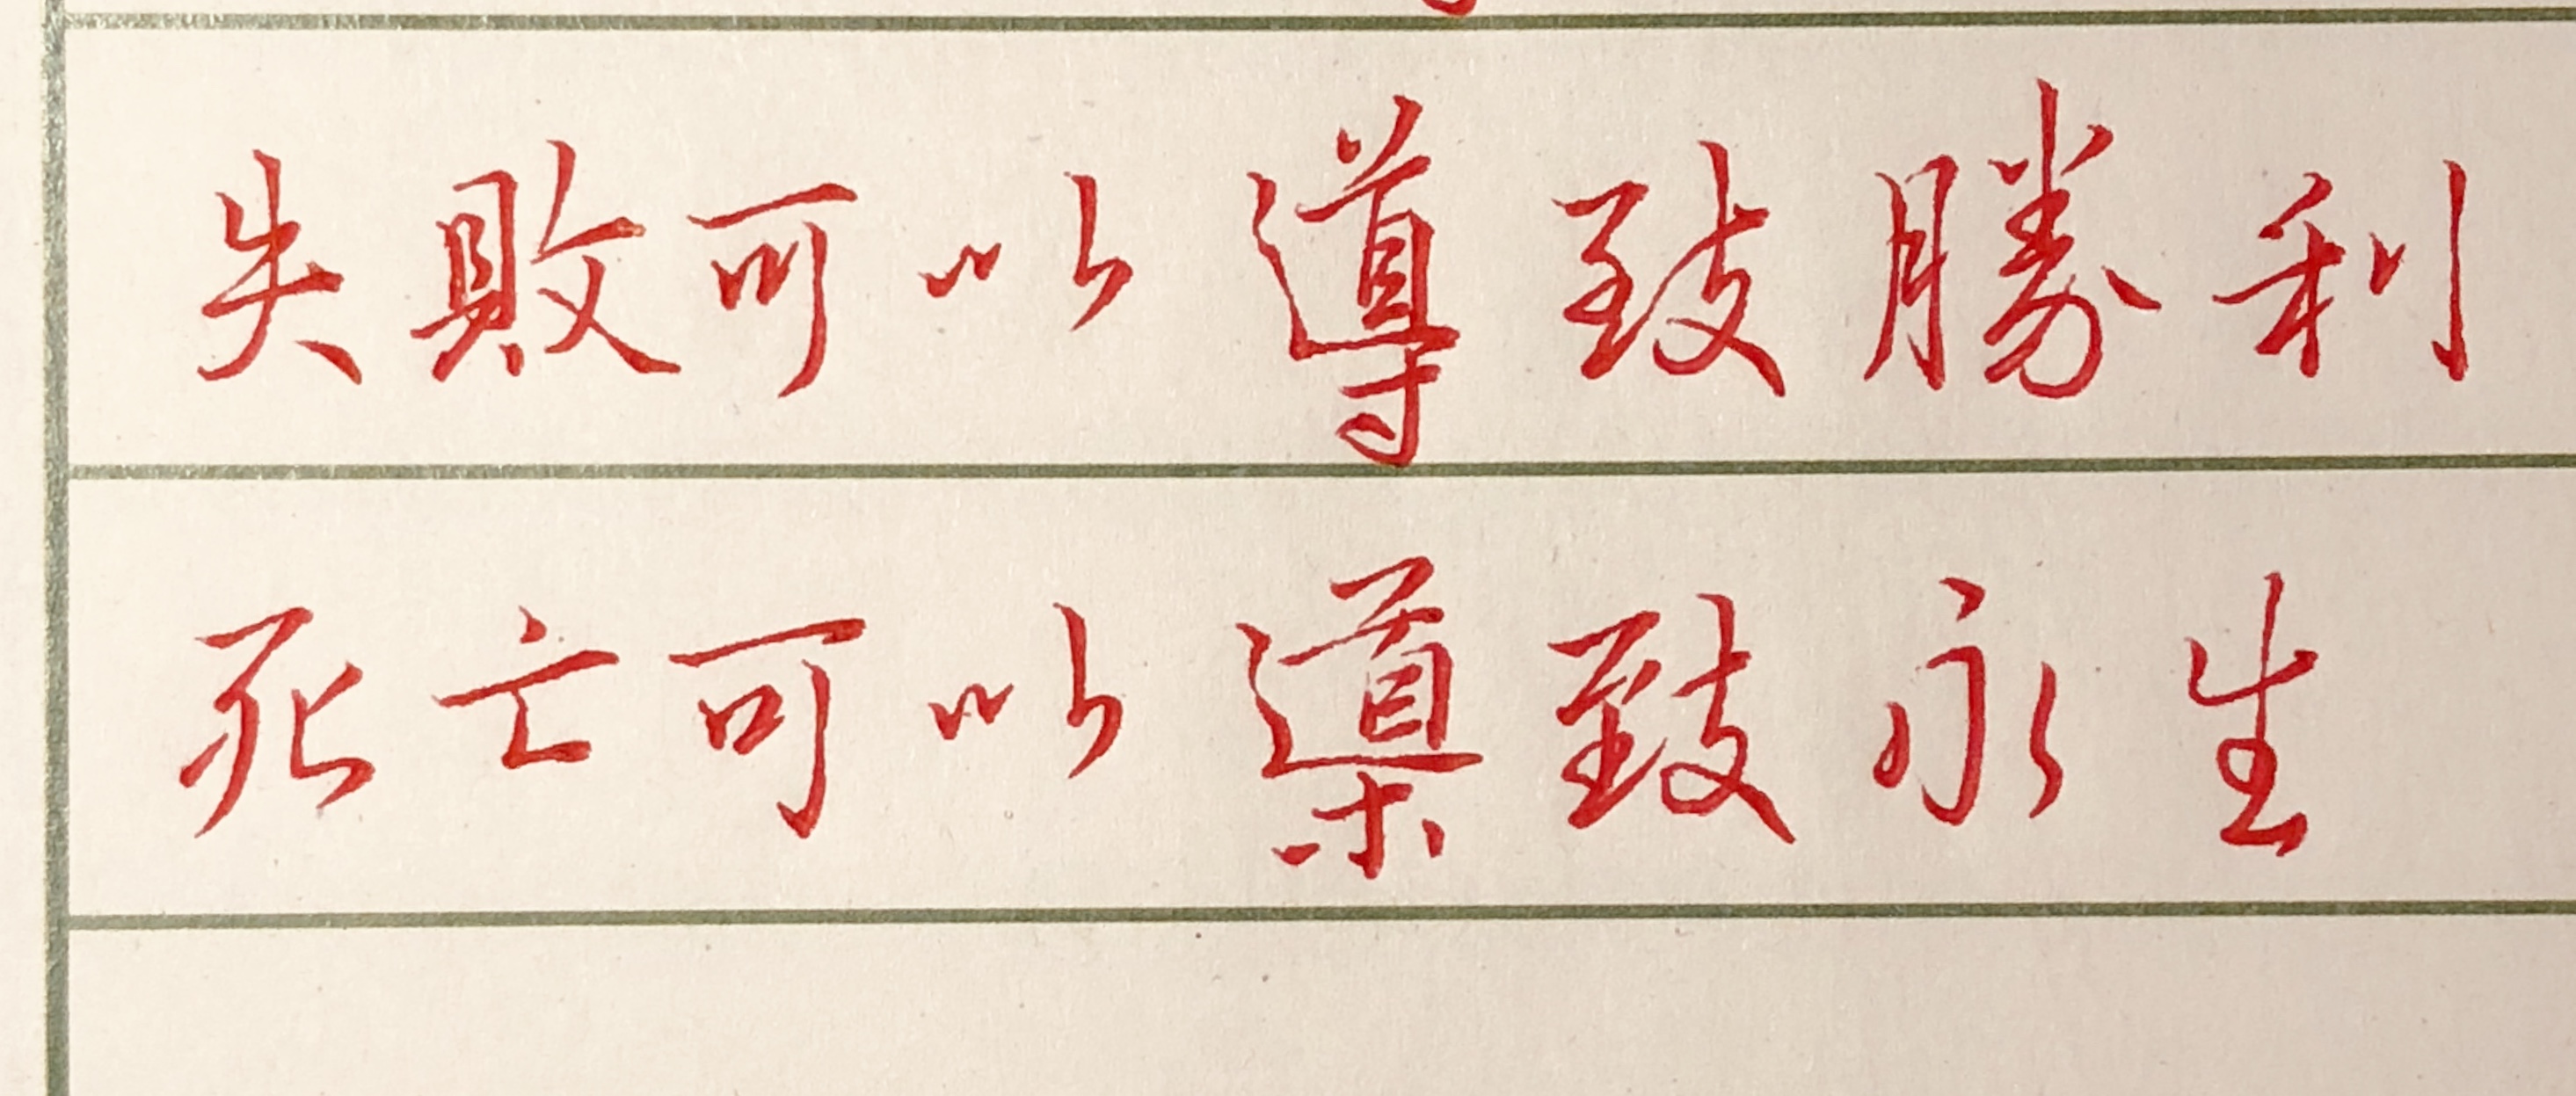 失敗可以導致勝利
死亡可以導致永生